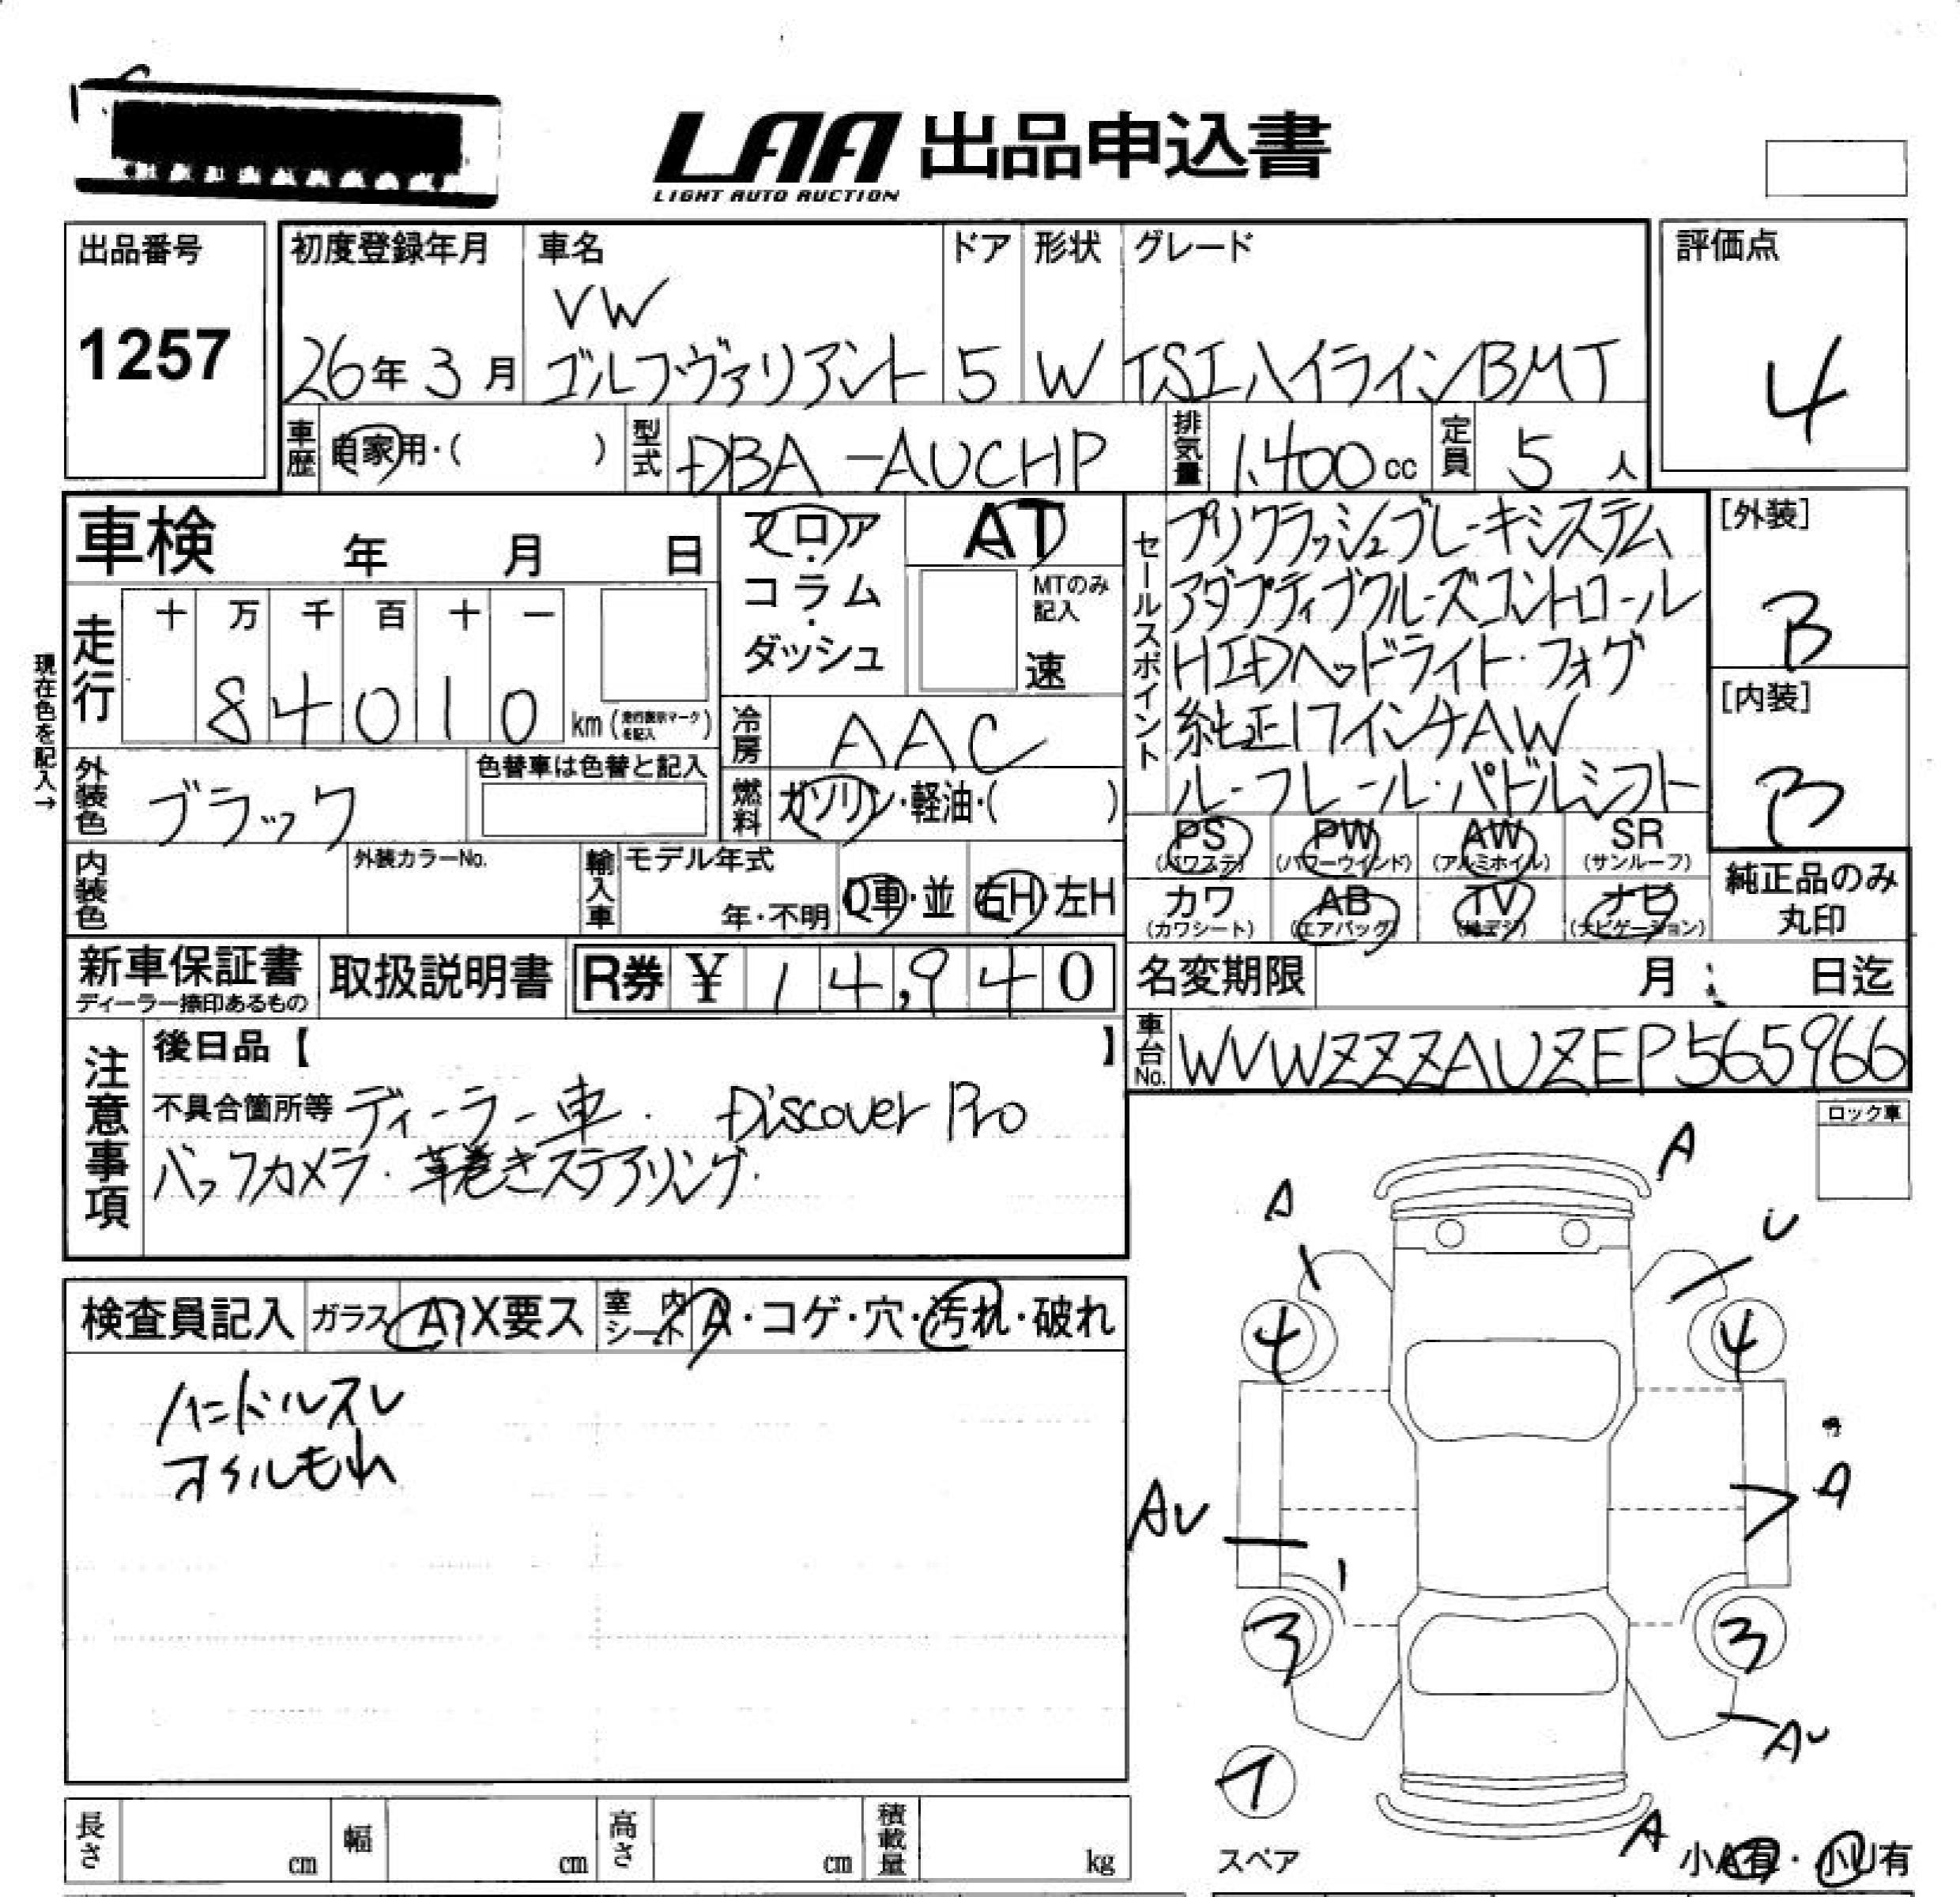 LAA 出品申込書
LIGHT AUTO AUCTION
出品番号
1257
初度登録年月
26年3月
車名
VW
ゴルフ・ヴァリアント
ドア
5
形状
W
グレード
TSIハイラインBMT
評価点
4
車歴
自家用・( )
型式
DBA-AUCHP
排気量
1.400cc
定員
5人
車検 年 月 日
フロア
コラム
ダッシュ
AT
MTのみ
記入
速
セールスポイント
プリクラッシュブレーキシステム
アダプティブクルーズコントロール
HIDヘッドライト・フォグ
純正17インチAW
ルーフレール・パドルシフト
[外装]
B
[内装]
B
現在色を記入→
走行
十 万 千 百 十 一
84010
km(走行表示マークを記入)
冷房
AAC
外装色
ブラック
色替車は色替と記入
燃料
ガソリン・軽油・( )
内装色
外装カラーNo.
輸入車
モデル年式
年・不明
D車・並
右H・左H
PS
(パワステ)
PW
(パワーウインド)
AW
(アルミホイル)
SR
(サンルーフ)
カワ
(カワシート)
AB
(エアバッグ)
TV
(地デジ)
ナビ
(ナビゲーション)
純正品のみ
丸印
新車保証書
ディーラー捺印あるもの
取扱説明書
R券 ¥14,940
名変期限 月 日迄
車台No.
WVWZZZAUZEP565966
注意事項
後日品【 】
不具合箇所等 ディーラー車. Discover Pro
バックカメラ・革巻きステアリング.
ロック車
検査員記入
ガラス A・X要ス
室内シート A・コゲ・穴・汚れ・破れ
ハンドルスレ
オイルもれ
A
A
U
4
4
A
AU
3
3
AU
スペア
A
小A有・小U有
長さ cm
幅 cm
高さ cm
積載量 kg